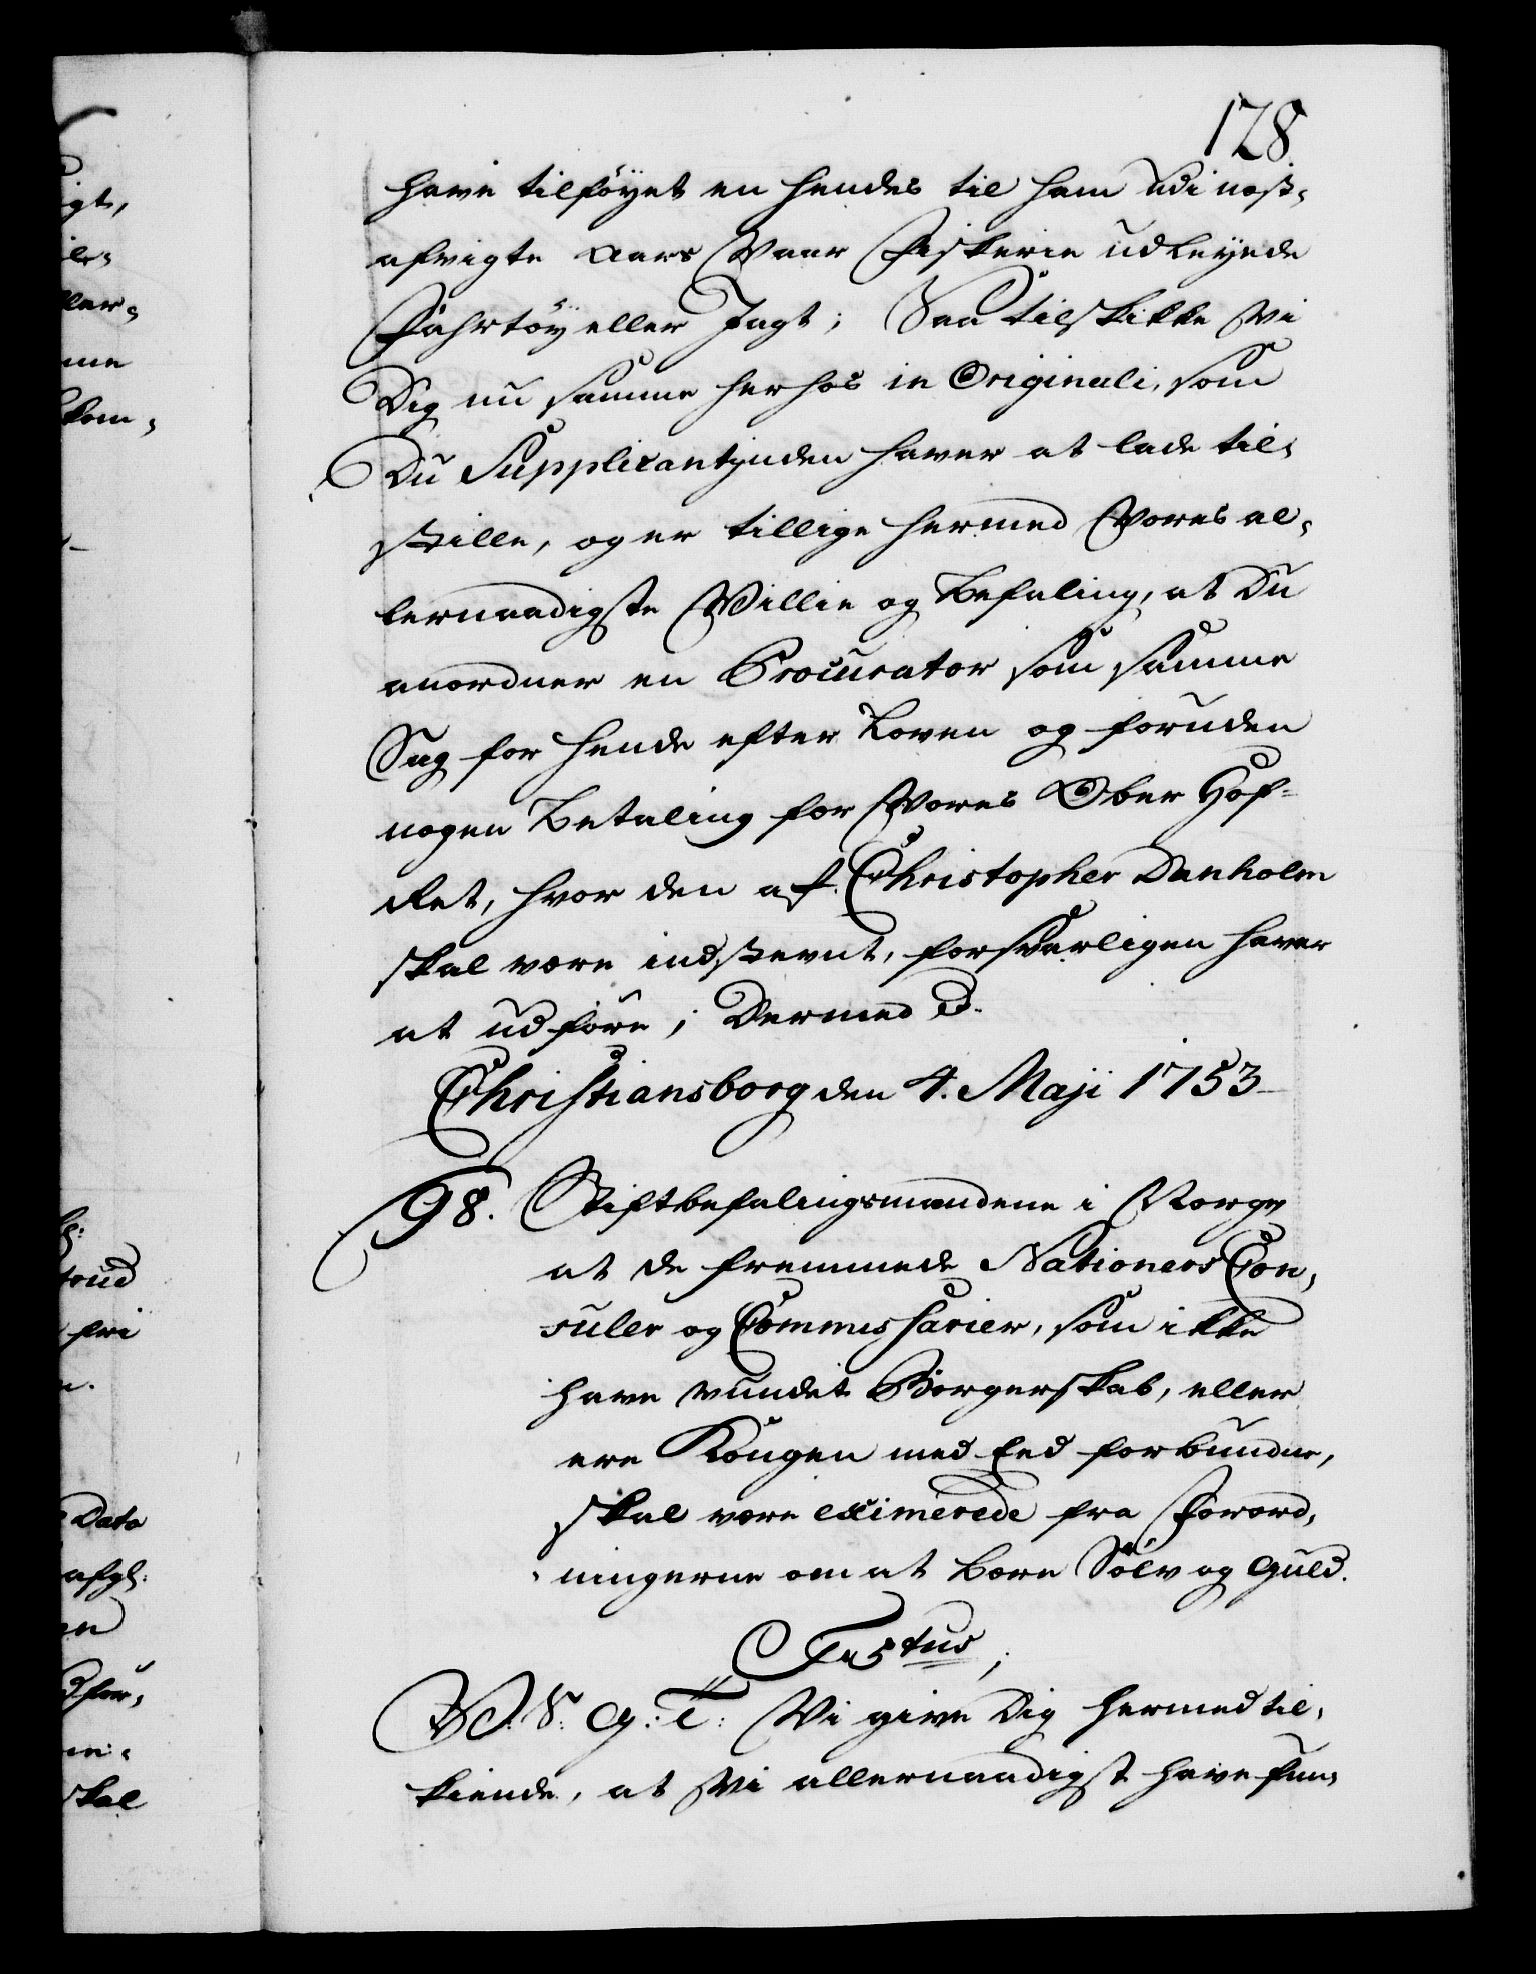 128
have tilföyet en hendes til ham udi næst-
afvigte Aars Vaar Fiskerie udleyede
Fahrtöy eller Jagt; Saa tilskikke Vi
Dig nu samme herhos in Originali, som
Du Supplicantinden haver at lade til-
stille, og er tillige hermed Vores al-
lernaadigste Villie og Befaling, at Du
anordner en Procurator som samme
Sag for hende efter Loven og foruden
nogen Betaling for Vores Ober Hof-
Ret, hvor den af Christopher Danholm
skal være indstevnt, forsvarligen haver
at udföre; Dermed
Christiansborg den 4. Maji 1753
98. Stiftbefalingsmændene i Norge
at de fremmede Nationers Con-
suler og Commissarier, som ikke
have vundet Borgerskab, eller
ere Kongen med Eed forbundne,
skal være eximerede fra Forord-
ningerne om at bære Sölv og Guld.
F 5tus
V. S. G. T: Vi give Dig hermed til-
kiende, at Vi allernaadigst have fun-
igt,
ler-
me
kom-
fri
Dato
afg:
en
skal